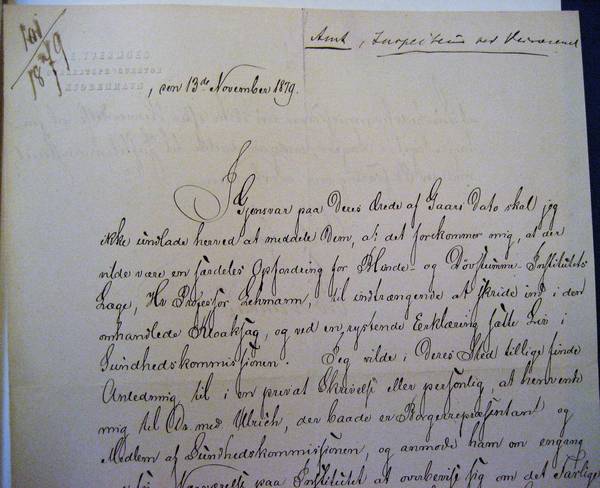 101
1879
Amt, Inspecteur ved Veivæsenet
, den 13de November 1879.
I Gjensvar paa Deres Ærede af Gaars Dato skal jeg
ikke undlade herved at meddele Dem, at det forekommer mig, at der
vilde være en særdeles Opfordring for Blinde- og Døvstumme-Institutets
Læge, Hr Professor Lehmann, til indtrængende at skride ind i den
omhandlede Kloaksag, og ved en rystende Erklæring sætte Liv i
Sundhedskommissionen. Jeg vilde i Deres Sted tillige finde
Anledning til i en privat Skrivelse eller personlig, at henvende
mig til Dr. med Ulrich, der baade er Borgerrepræsentant og
Medlem af Sundhedskommissionen, og anmode ham om engang
Nærværelse paa Institutet at overbevise sig om det farlige